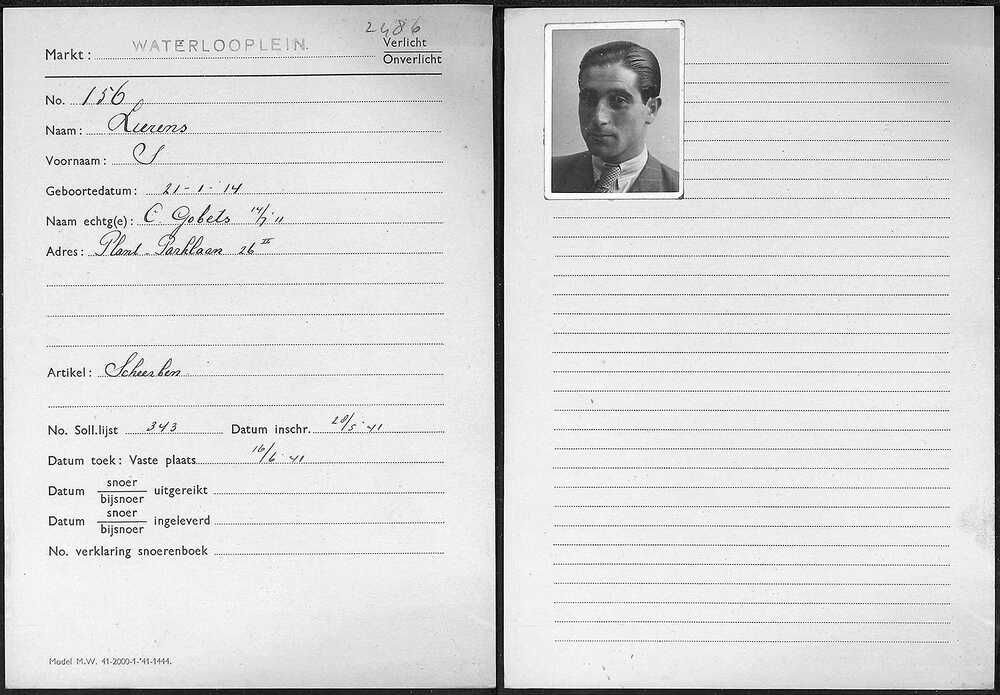 2486
Markt: WATERLOOPLEIN.
Verlicht
Onverlicht
No. 156
Naam: Lierens
Voornaam: S
Geboortedatum: 21-1-14
Naam echtg(e): C. Gobets 14/7 11
Adres: Plant. Parklaan 26 II
Artikel: Scheerben
No. Soll.lijst 343 Datum inschr. 28/5 '41
Datum toek: Vaste plaats 16/6 '41
Datum snoer/bijsnoer uitgereikt
Datum snoer/bijsnoer ingeleverd
No. verklaring snoerenboek
Model M.W. 41-2000-1-'41-1444.